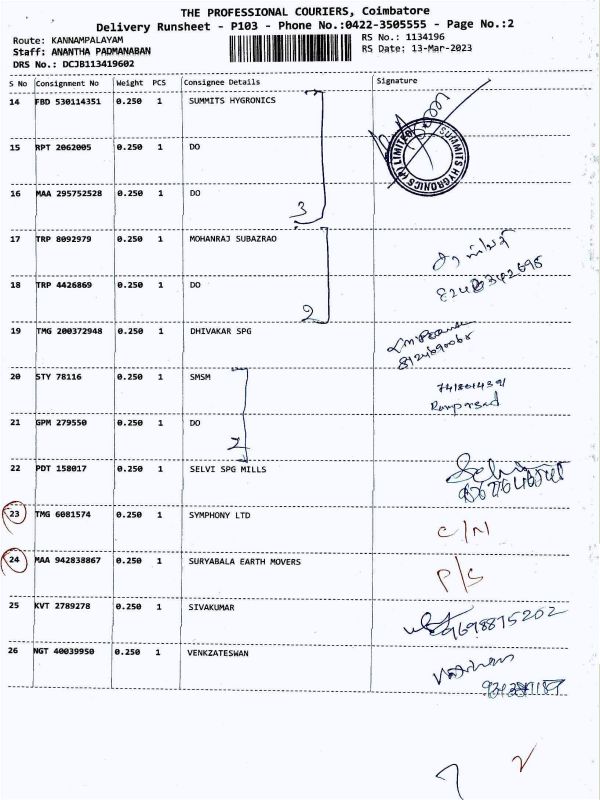 THE PROFESSIONAL COURIERS, Coimbatore
Delivery Runsheet - P103 - Phone No.:0422-3505555 - Page No.:2
Route: KANNAMPALAYAM RS No.: 1134196
Staff: ANANTHA PADMANABAN RS Date: 13-Mar-2023
DRS No.: DCJB113419602
S No Consignment No Weight PCS Consignee Details Signature
14 FBD 530114351 0.250 1 SUMMITS HYGRONICS
SUMMITS HYGRONICS (P) LIMITED
15 RPT 2062005 0.250 1 DO
16 MAA 295752528 0.250 1 DO
3
17 TRP 8092979 0.250 1 MOHANRAJ SUBAZRAO
18 TRP 4426869 0.250 1 DO
2
19 TMG 200372948 0.250 1 DHIVAKAR SPG
8124690068
20 STY 78116 0.250 1 SMSM
Ramprasad
21 GPM 279550 0.250 1 DO
2
22 PDT 158017 0.250 1 SELVI SPG MILLS
23 TMG 6081574 0.250 1 SYMPHONY LTD
C/N
24 MAA 942838867 0.250 1 SURYABALA EARTH MOVERS
P/S
25 KVT 2789278 0.250 1 SIVAKUMAR
9698875202
26 NGT 40039950 0.250 1 VENKZATESWAN
7 2